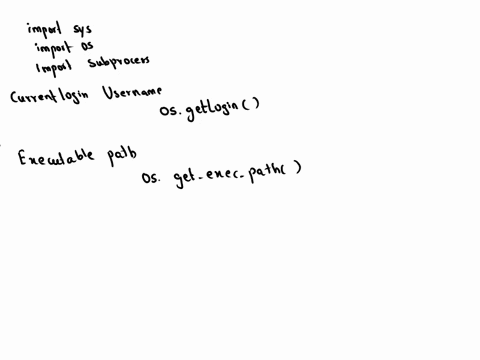 import sys
import os
import Subprocess
Current login Username
os.getlogin()
Executable path
os. get_exec_path( )